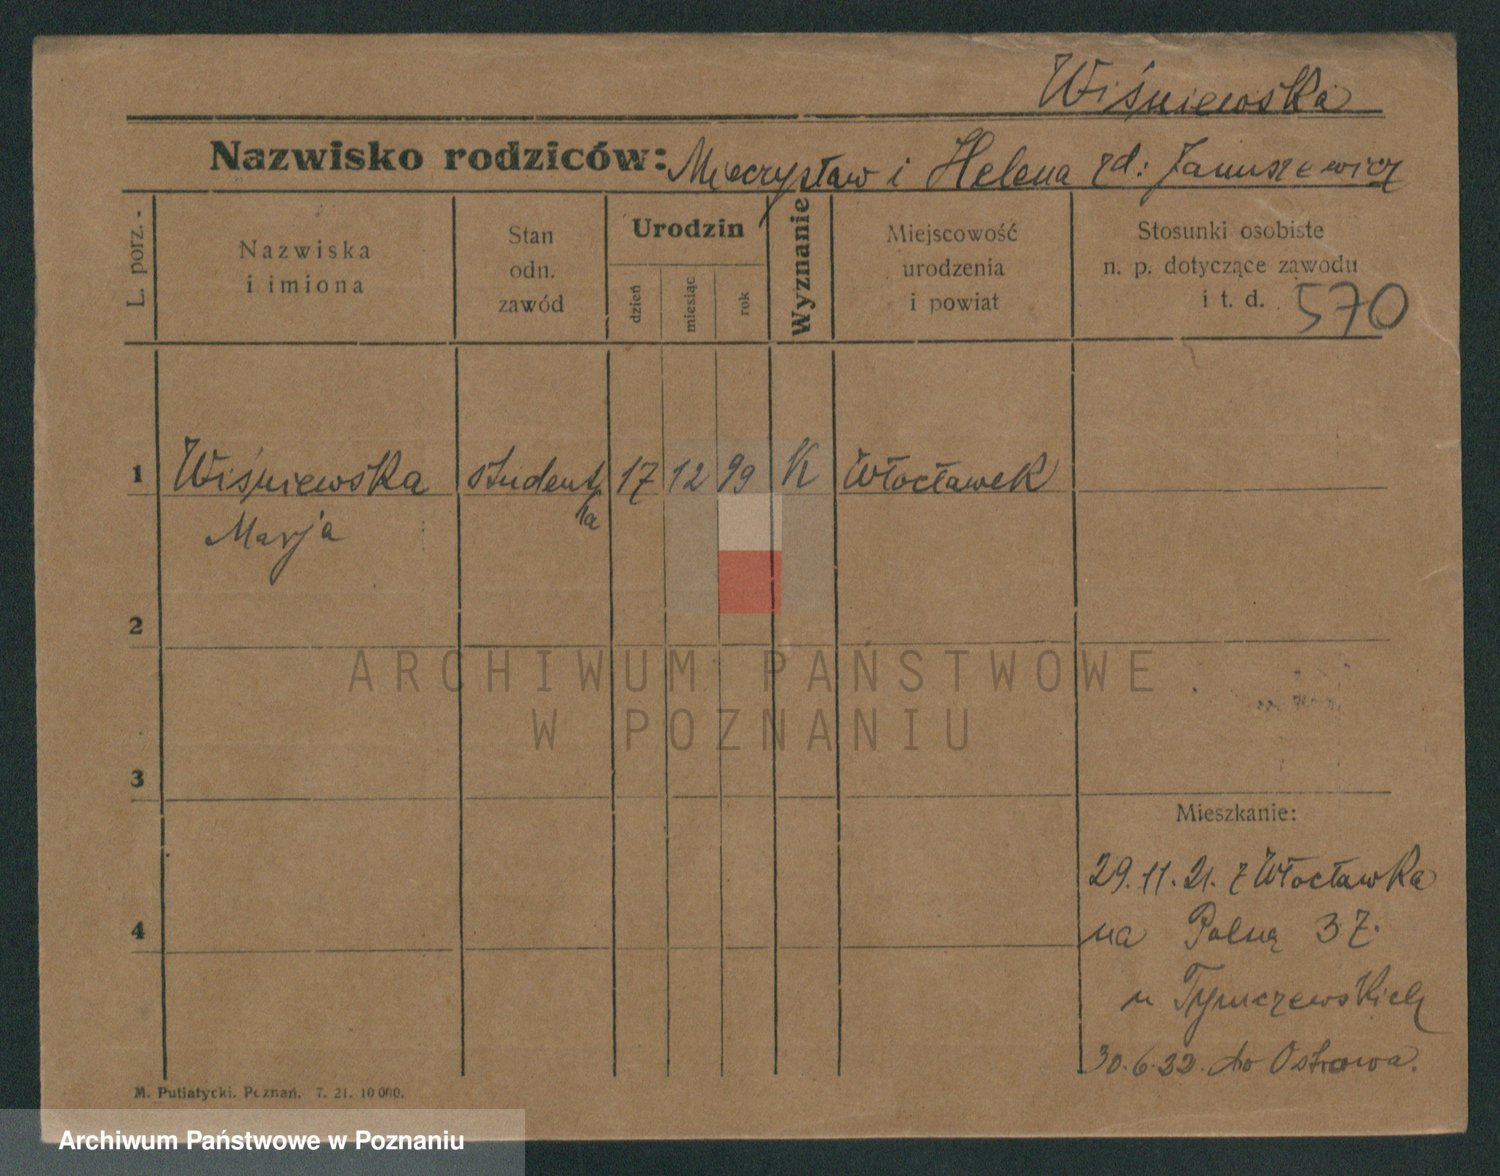 Wiśniewska
Nazwisko rodziców: Mieczysław i Helena zd: Januszewicz
L. porz.
Nazwiska
i imiona
Stan
odn.
zawód
Urodzin
dzień
miesiąc
rok
Wyznanie
Miejscowość
urodzenia
i powiat
Stosunki osobiste
n. p. dotyczące zawodu
i t. d. 570
1 Wiśniewska student 17 12 99 K Włocławek
ka
Marja
2
ARCHIWUM PAŃSTWOWE
W POZNANIU
3
Mieszkanie:
29.11.21. z Włocławka
4
na Polną 37.
u Tymczewskich
30.6.22. do Ostrowa.
M. Putiatycki. Poznań. 7. 21. 10 000.
Archiwum Państwowe w Poznaniu